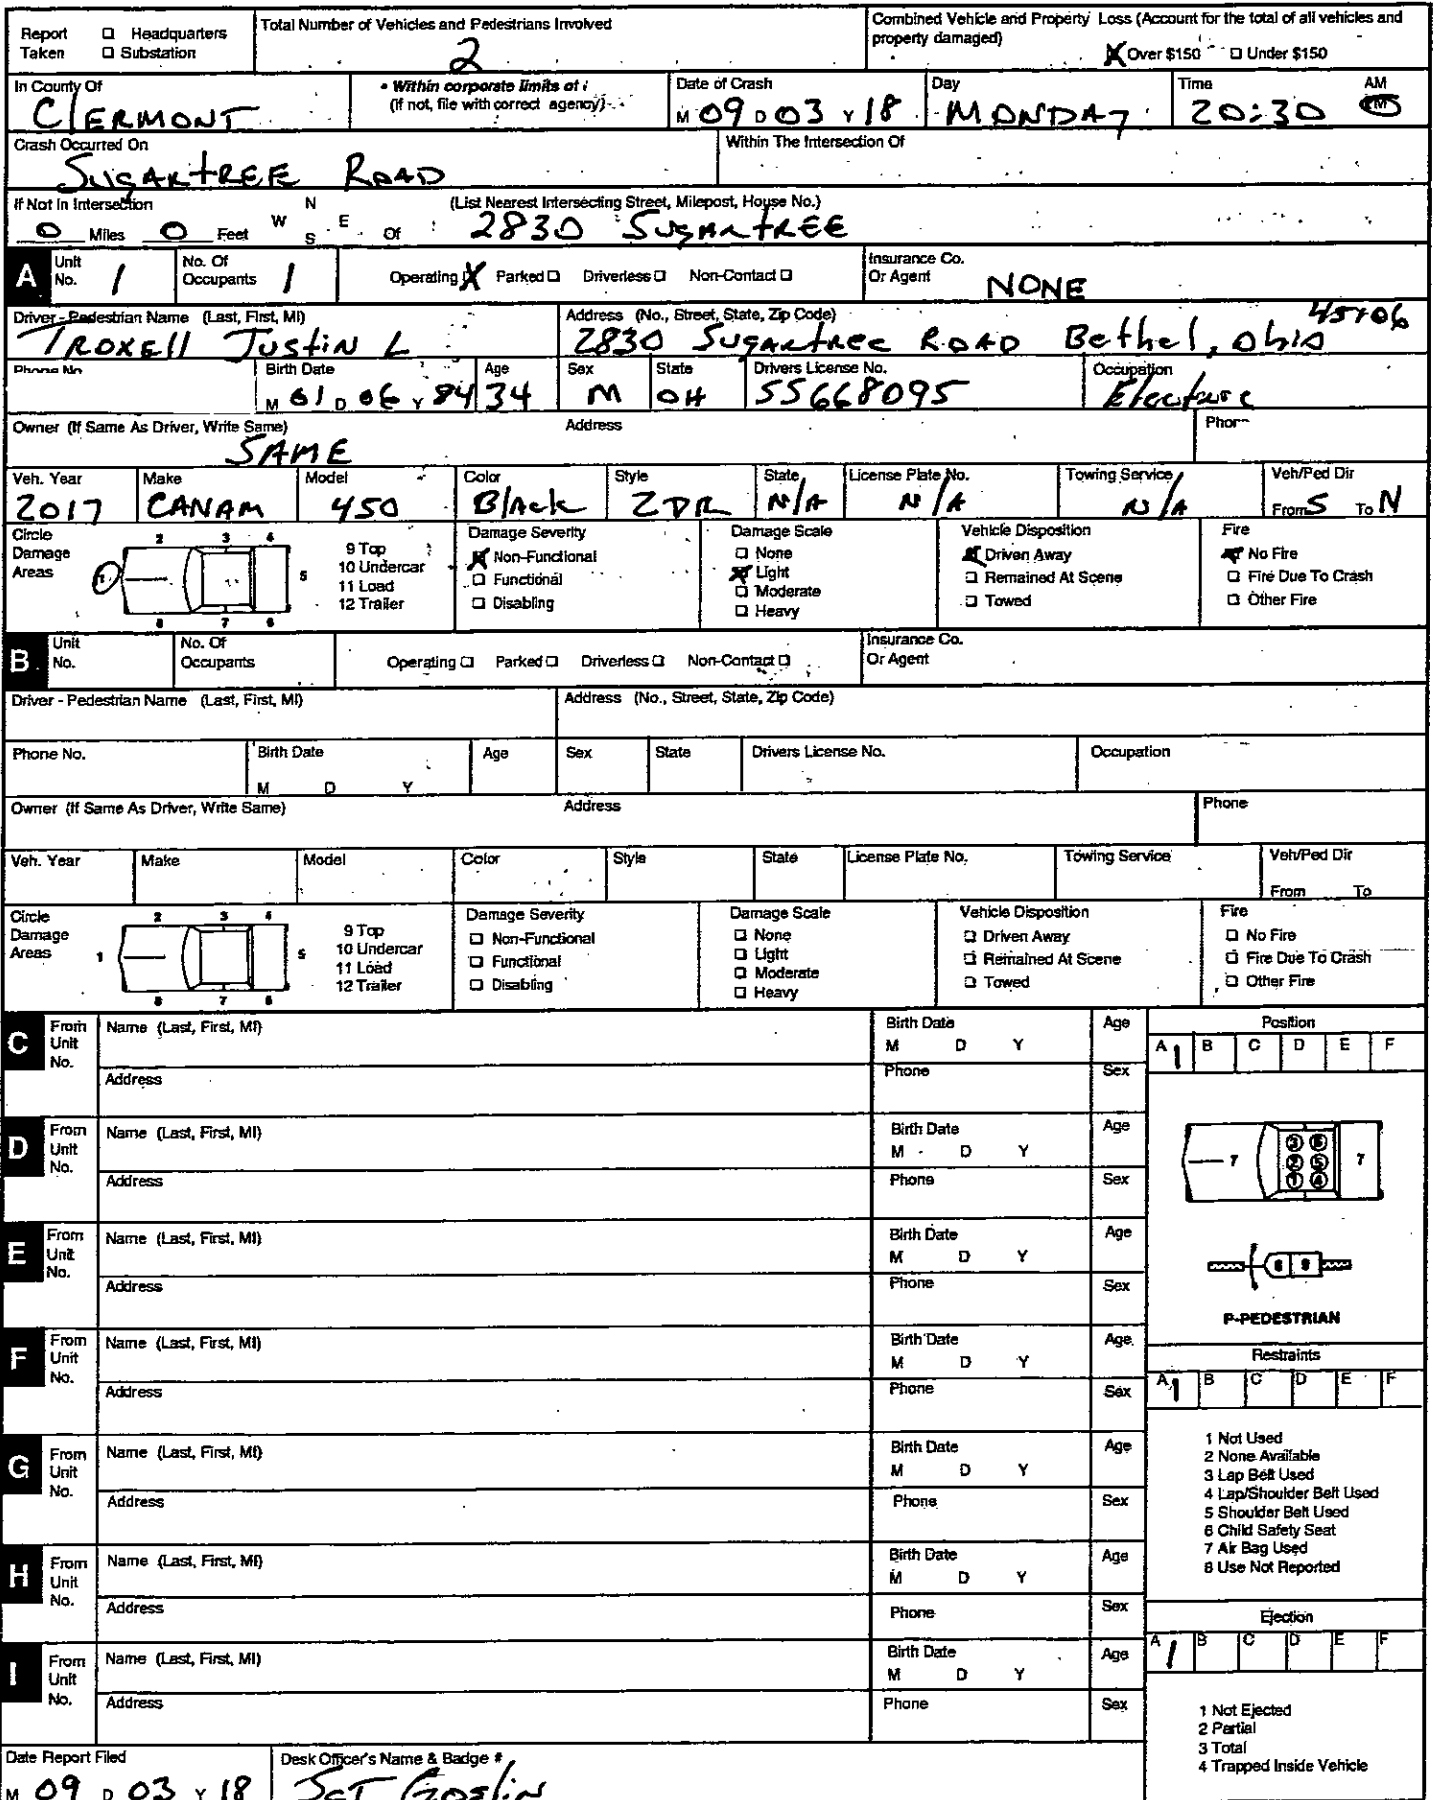 Report Taken ☐ Headquarters ☐ Substation
Total Number of Vehicles and Pedestrians Involved 2
Combined Vehicle and Property Loss (Account for the total of all vehicles and property damaged) ☒ Over $150 ☐ Under $150
In County Of CLERMONT
• Within corporate limits of (if not, file with correct agency)
Date of Crash M 09 D 03 Y 18
Day MONDAY
Time 20:30 AM PM
Crash Occurred On SugARtREE ROAD
Within The Intersection Of
If Not In Intersection 0 Miles 0 Feet N W E S Of
(List Nearest Intersecting Street, Milepost, House No.) 2830 SugARtREE
A Unit No. 1 No. Of Occupants 1 Operating ☒ Parked ☐ Driverless ☐ Non-Contact ☐ Insurance Co. Or Agent NONE
Driver - Pedestrian Name (Last, First, MI) TROXEll JUStiN L
Address (No., Street, State, Zip Code) 2830 SugARtree ROAD Bethel, Ohio 45106
Phone No. Birth Date M 01 D 06 Y 84 Age 34 Sex M State OH Drivers License No. 55668095 Occupation
Owner (If Same As Driver, Write Same) SAME Address
Veh. Year 2017 Make CANAM Model 450 Color Black Style 2DR State N/A License Plate No. N/A Towing Service N/A Veh/Ped Dir From S To N
Circle Damage Areas 1 2 3 4 5 6 7 8 9 Top 10 Undercar 11 Load 12 Trailer
Damage Severity ☒ Non-Functional ☐ Functional ☐ Disabling
Damage Scale ☐ None ☒ Light ☐ Moderate ☐ Heavy
Vehicle Disposition ☒ Driven Away ☐ Remained At Scene ☐ Towed
Fire ☒ No Fire ☐ Fire Due To Crash ☐ Other Fire
B Unit No. No. Of Occupants Operating ☐ Parked ☐ Driverless ☐ Non-Contact ☐ Insurance Co. Or Agent
Driver - Pedestrian Name (Last, First, MI) Address (No., Street, State, Zip Code)
Phone No. Birth Date M D Y Age Sex State Drivers License No. Occupation
Owner (If Same As Driver, Write Same) Address Phone
Veh. Year Make Model Color Style State License Plate No. Towing Service Veh/Ped Dir From To
Circle Damage Areas 1 2 3 4 5 6 7 8 9 Top 10 Undercar 11 Load 12 Trailer
Damage Severity ☐ Non-Functional ☐ Functional ☐ Disabling
Damage Scale ☐ None ☐ Light ☐ Moderate ☐ Heavy
Vehicle Disposition ☐ Driven Away ☐ Remained At Scene ☐ Towed
Fire ☐ No Fire ☐ Fire Due To Crash ☐ Other Fire
C From Unit No. Name (Last, First, MI) Birth Date M D Y Age
Address Phone Sex
D From Unit No. Name (Last, First, MI) Birth Date M D Y Age
Address Phone Sex
E From Unit No. Name (Last, First, MI) Birth Date M D Y Age
Address Phone Sex
F From Unit No. Name (Last, First, MI) Birth Date M D Y Age
Address Phone Sex
G From Unit No. Name (Last, First, MI) Birth Date M D Y Age
Address Phone Sex
H From Unit No. Name (Last, First, MI) Birth Date M D Y Age
Address Phone Sex
I From Unit No. Name (Last, First, MI) Birth Date M D Y Age
Address Phone Sex
Position
A 1 B C D E F
7 3 6 2 5 1 4 7
8 9
P-PEDESTRIAN
Restraints
A 1 B C D E F
1 Not Used
2 None Available
3 Lap Belt Used
4 Lap/Shoulder Belt Used
5 Shoulder Belt Used
6 Child Safety Seat
7 Air Bag Used
8 Use Not Reported
Ejection
A 1 B C D E F
1 Not Ejected
2 Partial
3 Total
4 Trapped Inside Vehicle
Date Report Filed M 09 D 03 Y 18
Desk Officer's Name & Badge # SGT Goslin